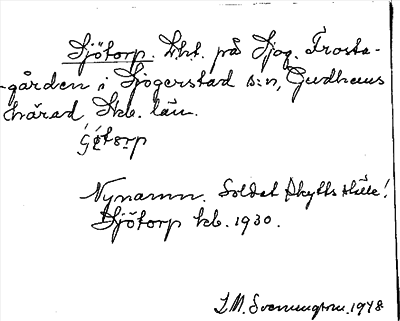 Sjötorp. Lht. på Sjog. Frosta-
-gården i Sjogerstad s:n, Gudhems
härad, Skb. län.
Nynamn. Soldat Skytts ställe!
Sjötorp kb. 1930.
L.M. Svenungsson. 1948